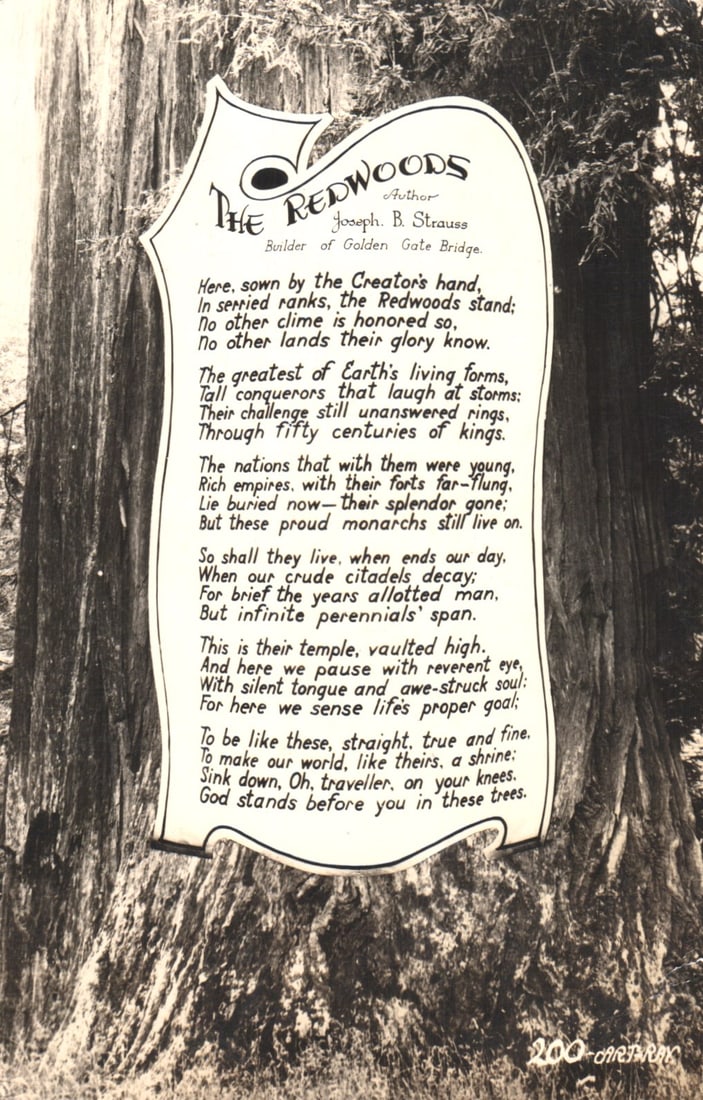 The Redwoods
Author
Joseph. B. Strauss
Builder of Golden Gate Bridge.
Here, sown by the Creator's hand,
In serried ranks, the Redwoods stand;
No other clime is honored so,
No other lands their glory know.
The greatest of Earth's living forms,
Tall conquerors that laugh at storms;
Their challenge still unanswered rings,
Through fifty centuries of kings.
The nations that with them were young,
Rich empires, with their forts far-flung,
Lie buried now—their splendor gone;
But these proud monarchs still live on.
So shall they live, when ends our day,
When our crude citadels decay;
For brief the years allotted man,
But infinite perennials' span.
This is their temple, vaulted high.
And here we pause with reverent eye,
With silent tongue and awe-struck soul;
For here we sense life's proper goal;
To be like these, straight, true and fine,
To make our world, like theirs, a shrine;
Sink down, Oh, traveller, on your knees.
God stands before you in these trees.
200-ART-RAY